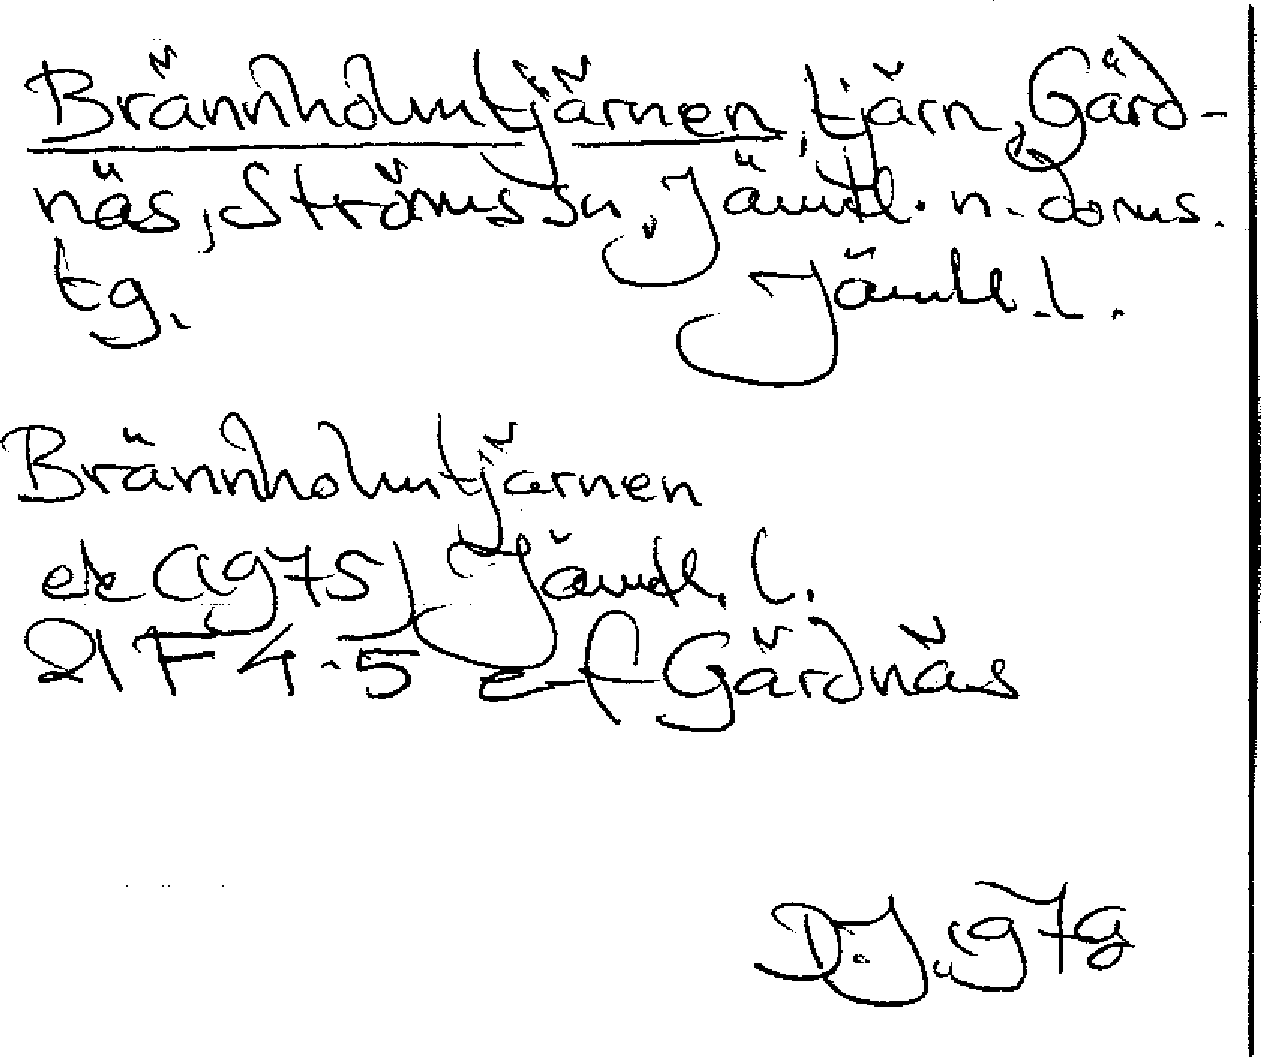 Brännholmtjärnen, tjärn, Gärd-
näs, Ströms sn, Jämtl. n. doms.
tg. Jämtl. l.
Brännholmtjärnen
ek (1975) Jämtl. l.
21 F 4-5 e-f Gärdnäs
D.J. 1979